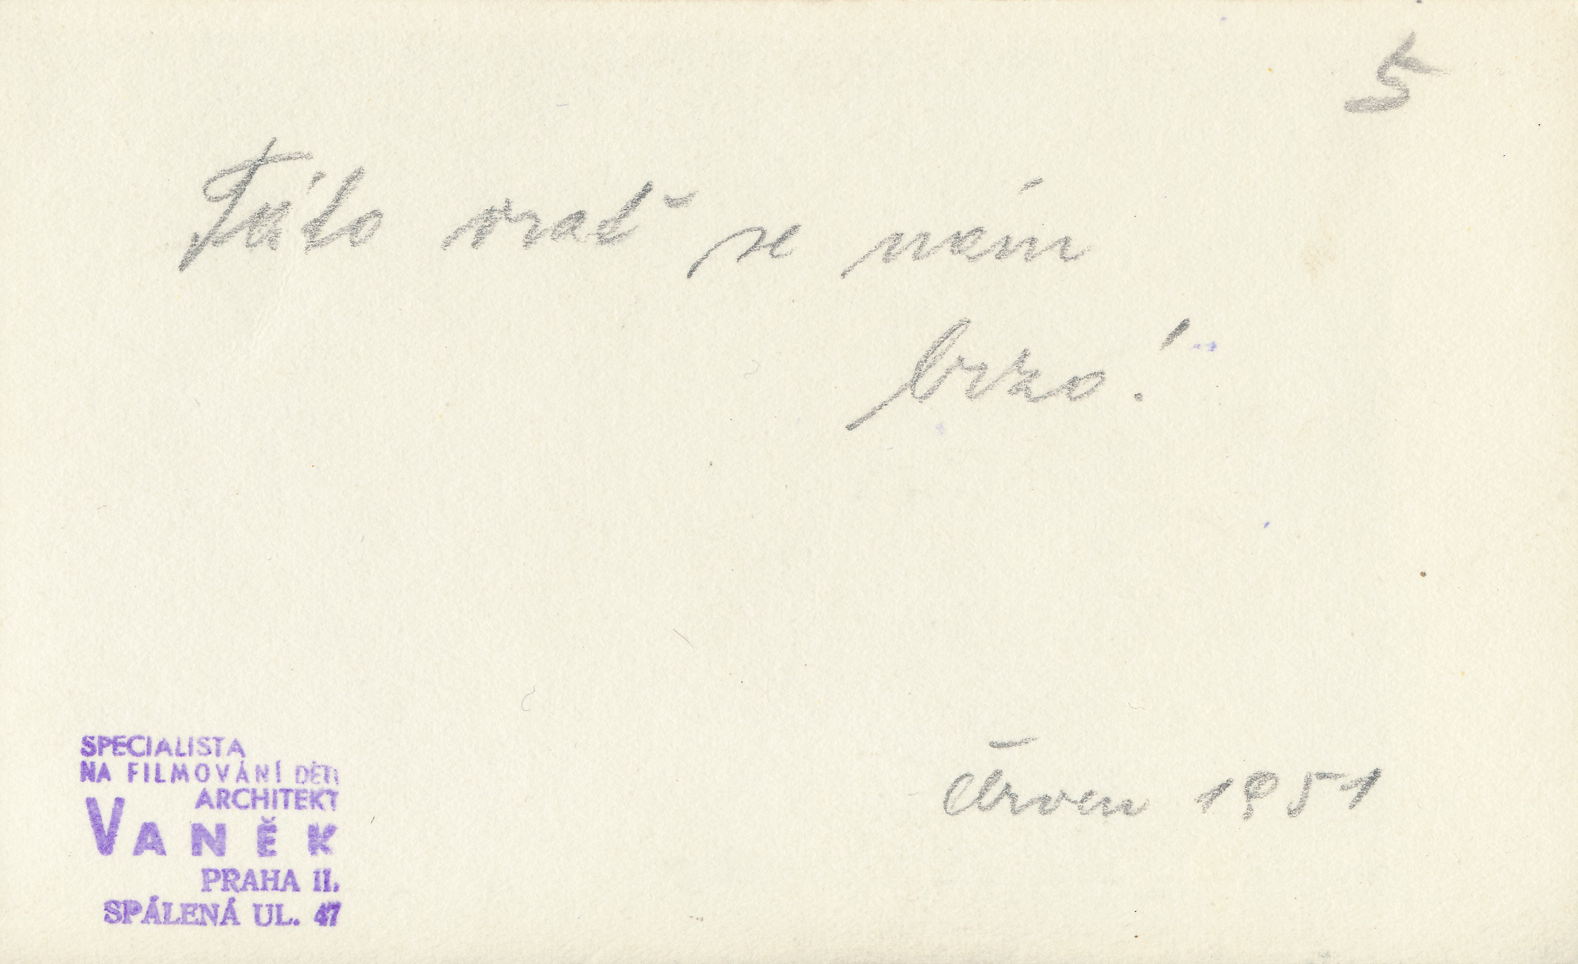 5
Táto vrať se nám
brzo!
červen 1951
SPECIALISTA
NA FILMOVÁNÍ DĚTÍ
ARCHITEKT
VANĚK
PRAHA II.
SPÁLENÁ UL. 47